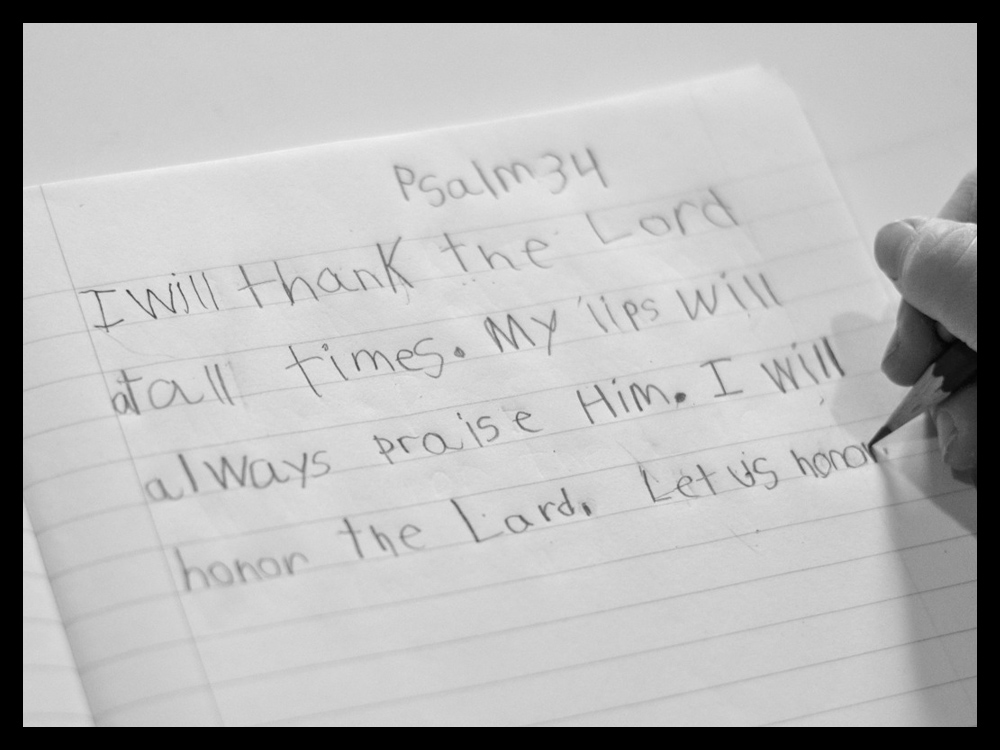 Psalm 34
I will thank the Lord
at all times. My lips will
always praise Him. I will
honor the Lard. Let us honor